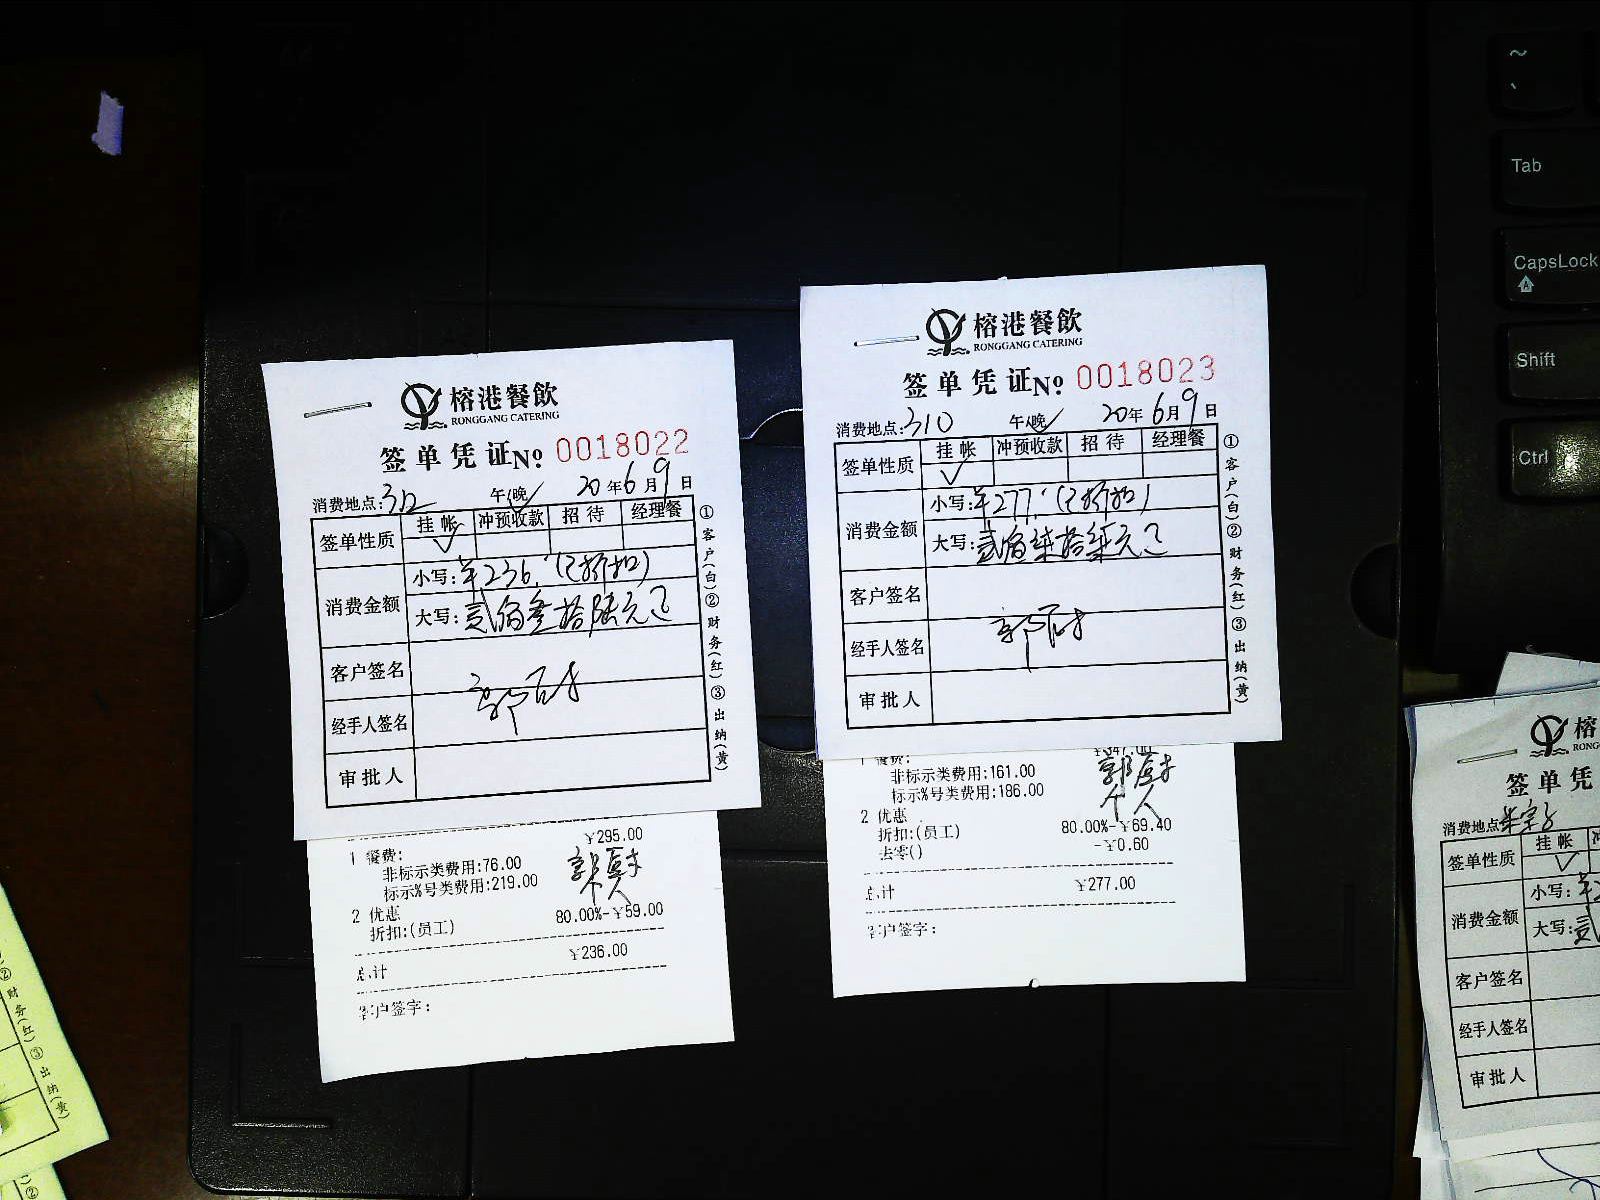 榕港餐飲
RONGGANG CATERING
签单凭证№ 0018022
消费地点:312 午/晚√ 20年6月9日
签单性质 挂帐 冲预收款 招待 经理餐
√
消费金额 小写:¥236.(已折扣)
大写:贰佰叁拾陆元已
客户签名
经手人签名
审批人
①客户(白)②财务(红)③出纳(黄)
¥295.00
1 餐费:
非标示类费用:76.00
标示%号类费用:219.00
个人
2 优惠
折扣:(员工) 80.00%-¥59.00
总计 ¥236.00
客户签字:
榕港餐飲
RONGGANG CATERING
签单凭证№ 0018023
消费地点:310 午/晚√ 20年6月9日
签单性质 挂帐 冲预收款 招待 经理餐
√
消费金额 小写:¥277.(已折扣)
大写:贰佰柒拾柒元已
客户签名
经手人签名
审批人
①客户(白)②财务(红)③出纳(黄)
¥347.00
1 餐费:
非标示类费用:161.00
标示%号类费用:186.00
个人
2 优惠
折扣:(员工) 80.00%-¥69.40
去零() -¥0.60
总计 ¥277.00
客户签字:
~
Tab
CapsLock
Shift
Ctrl
榕
RONG
签单凭
消费地点
签单性质 挂帐
√
消费金额 小写:
大写:贰
客户签名
经手人签名
审批人
②财务(红)③出纳(黄)
②